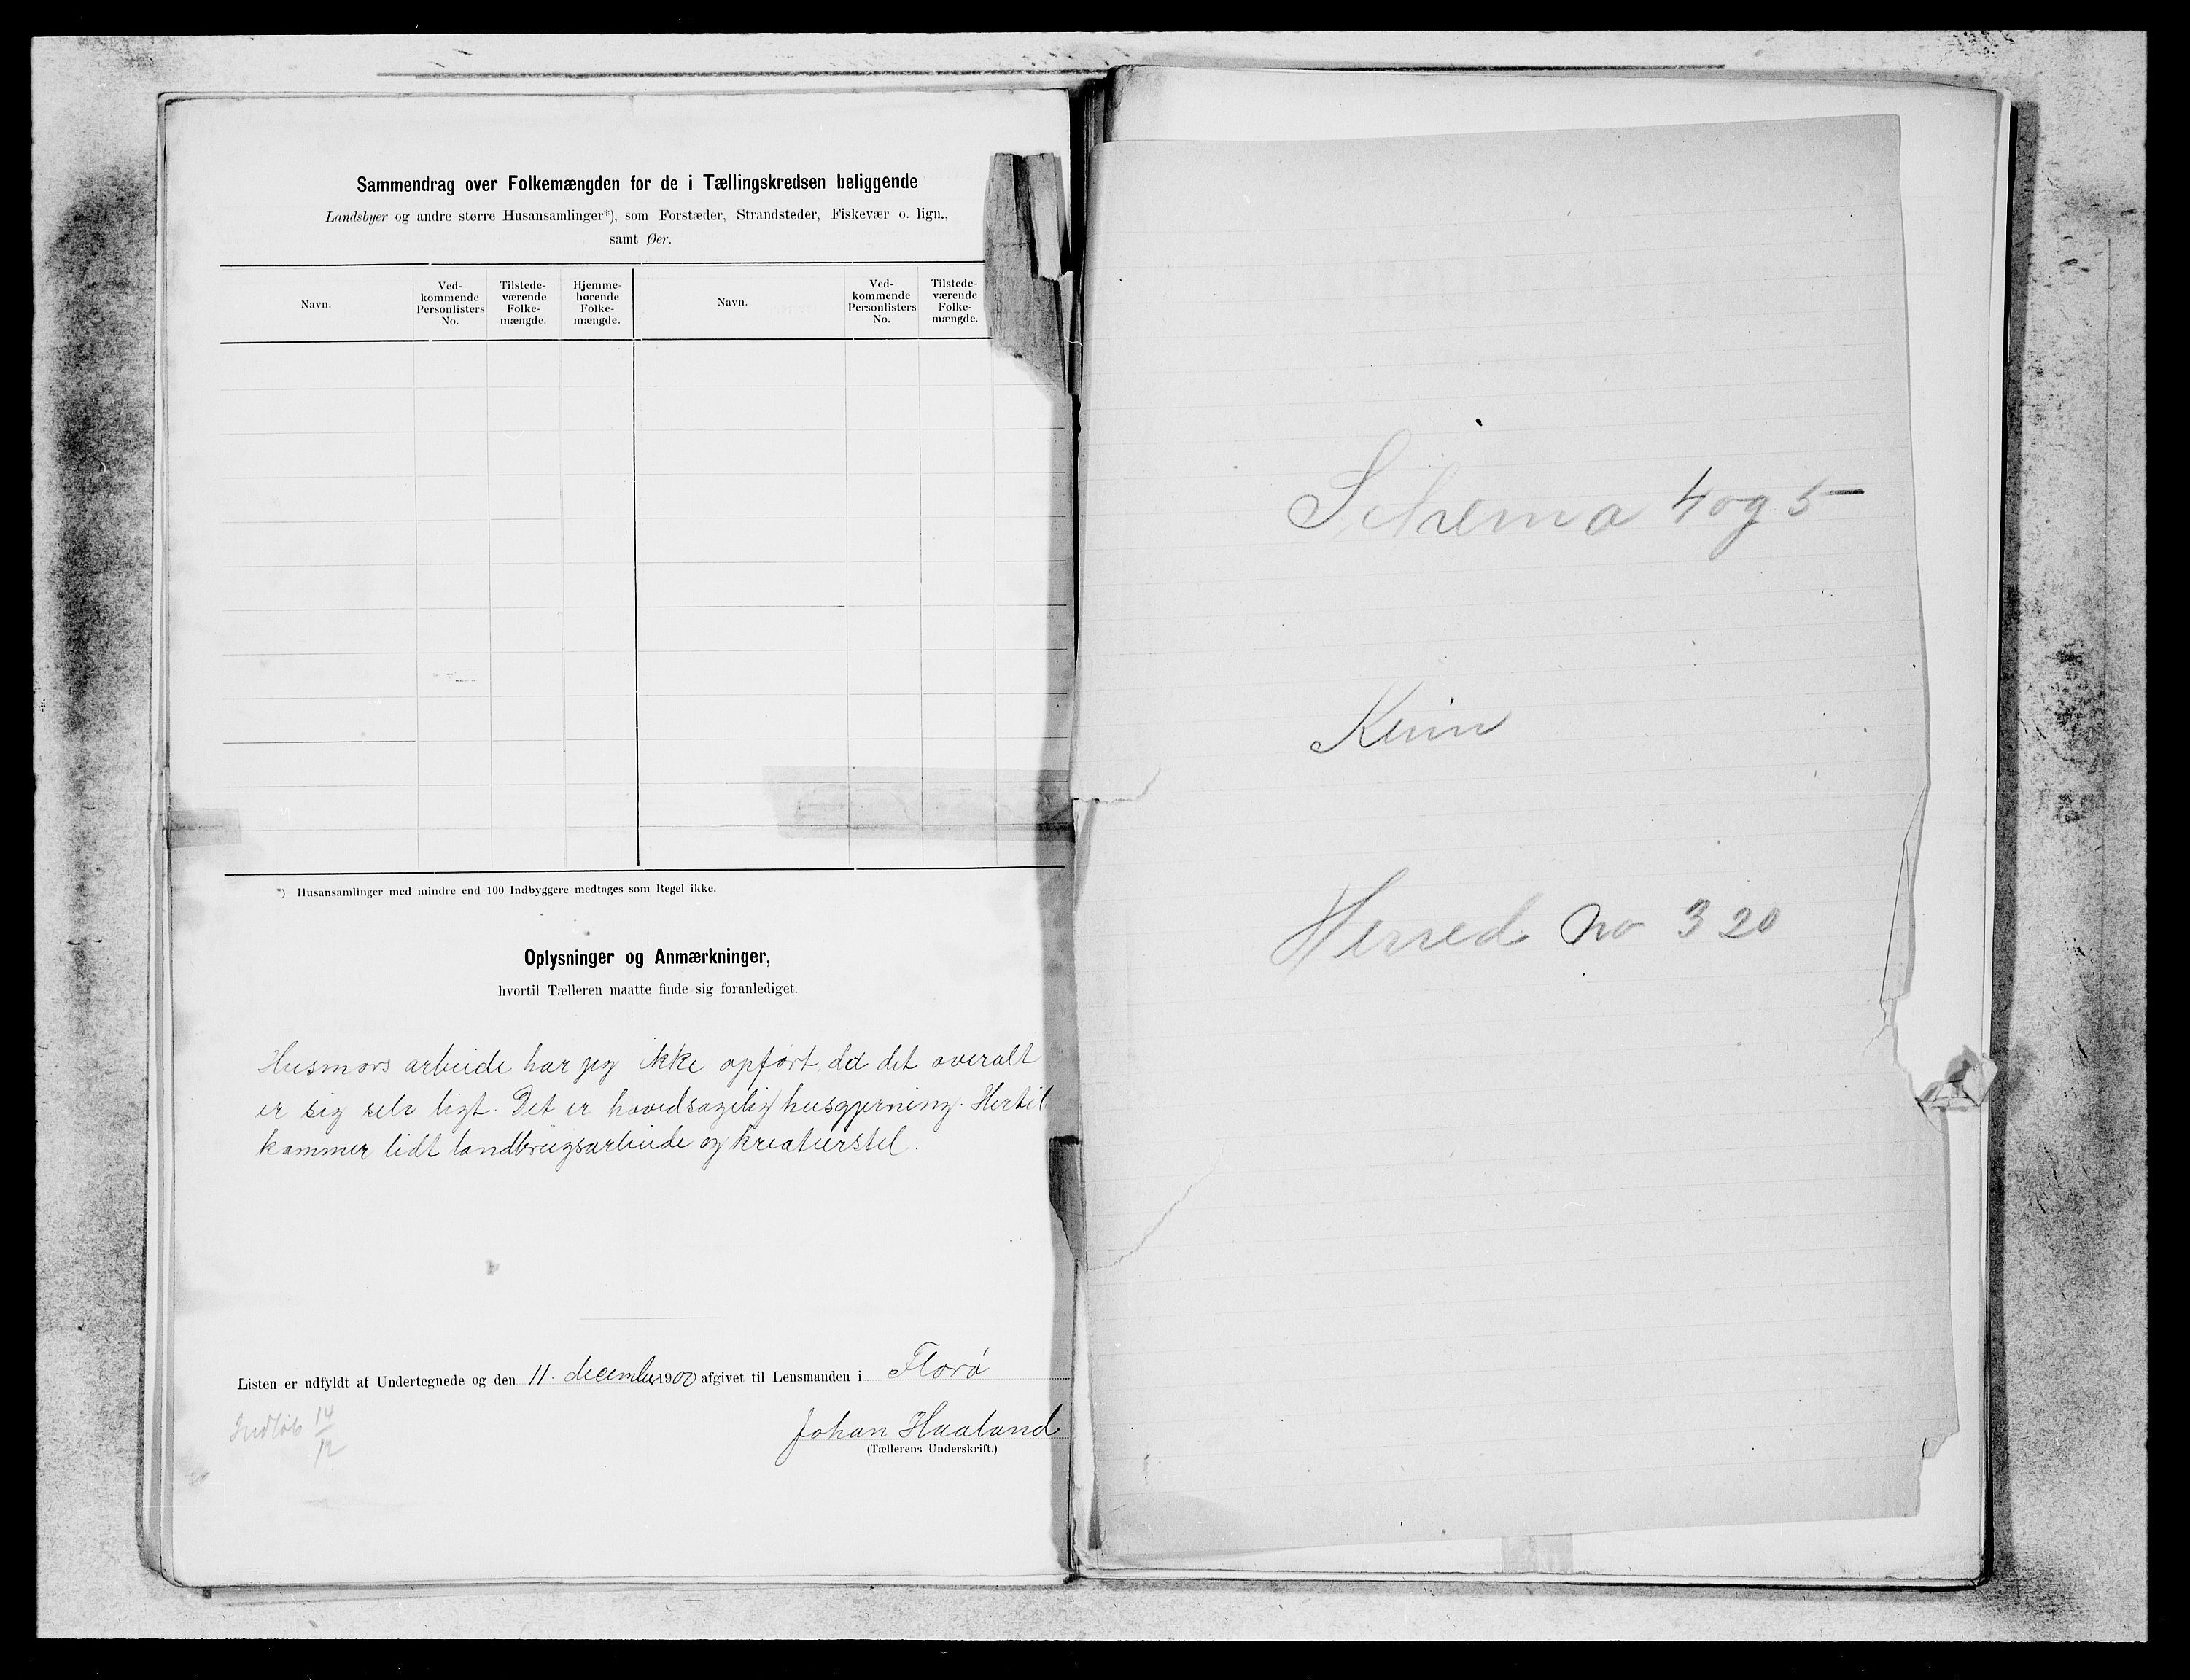 Sammendrag over Folkemængden for de i Tællingskredsen beliggende
Landsbyer og andre større Husansamlinger*), som Forstæder, Strandsteder, Fiskevær o. lign.,
samt Øer.
Navn.
Ved-
kommende
Personlisters
No.
Tilstede-
værende
Folke-
mængde.
Hjemme-
hørende
Folke-
mængde.
Navn.
Ved-
kommende
Personlisters
No.
Tilstede-
værende
Folke-
mængde.
*) Husansamlinger med mindre end 100 Indbyggere medtages som Regel ikke.
Oplysninger og Anmærkninger,
hvortil Tælleren maatte finde sig foranlediget.
Husmors arbeide har jeg ikke opført, da det overalt
er sig selv ligt. Det er hovedsagelig husgjerning. Hertil
kommer lidt landbrugsarbeide og kreaturstel.
Listen er udfyldt af Undertegnede og den 11. december 1900 afgivet til Lensmanden i Florø
Indløb 14/12
Johan Haaland
(Tællerens Underskrift.)
Schema 4 og 5
Kinn
Herred no 320